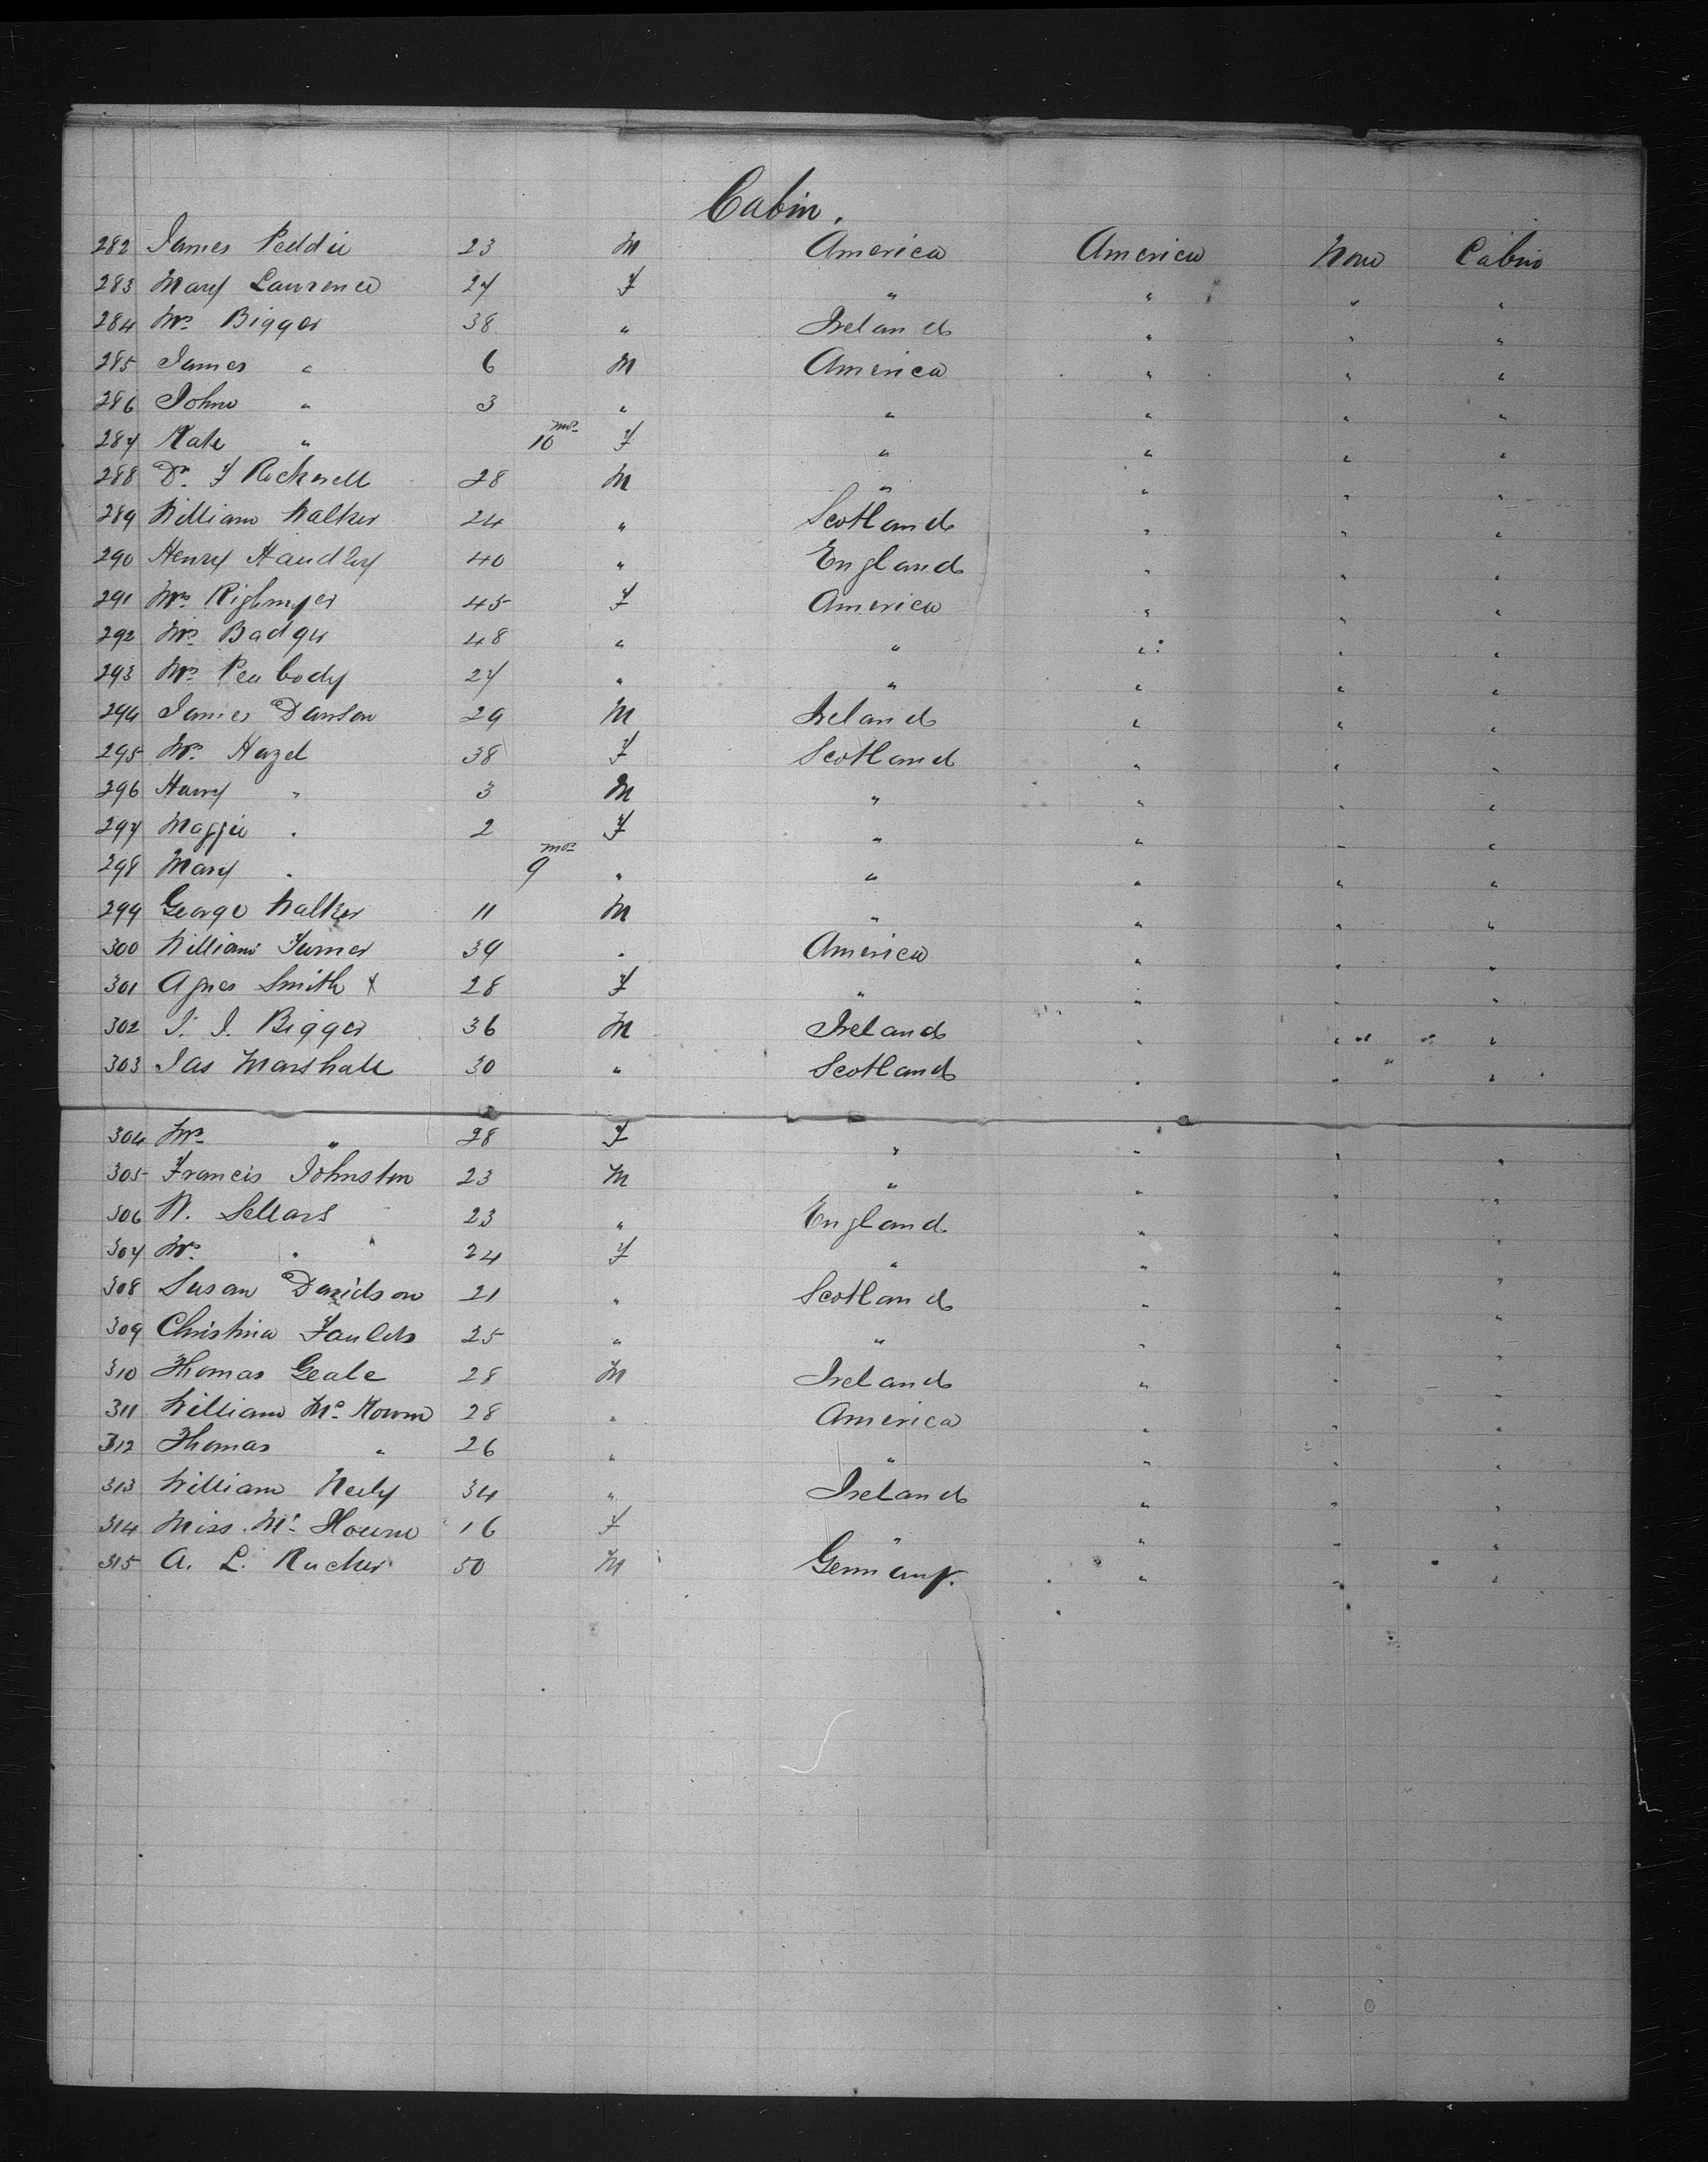 Cabin.
282 James Peddie 23 M America America None Cabin
283 Mary Lawrence 27 F " " " "
284 Mrs Bigger 38 " Ireland " " "
285 James " 6 M America " " "
286 John " 3 " " " " "
287 Kate " 10 mos F " " " "
288 Dr. F Rockwell 28 M " " " "
289 William Walker 24 " Scotland " " "
290 Henry Handley 40 " England " " "
291 Mrs Riglmyer 45 F America " " "
292 Mrs Badger 48 " " " " "
293 Mrs Peabody 27 " " " " "
294 James Dawson 29 M Ireland " " "
295 Mrs Hazel 38 F Scotland " " "
296 Harry " 3 M " " " "
297 Maggie " 2 F " " " "
298 Mary " 9 mos " " " " "
299 George Walker 11 M " " " "
300 William Turner 39 " America " " "
301 Agnes Smith x 28 F " " " "
302 J. J. Bigger 36 M Ireland " " "
303 Jas Marshall 30 " Scotland " " "
304 Mrs " 28 F " " " "
305 Francis Johnston 23 M " " " "
306 W. Sellars 23 " England " " "
307 Mrs " 24 F " " " "
308 Susan Davidson 21 " Scotland " " "
309 Christina Faulds 25 " " " " "
310 Thomas Geale 28 M Ireland " " "
311 William Mc 28 " America " " "
312 Thomas " 26 " " " " "
313 William Neely 34 " Ireland " " "
314 Miss Mc 16 F " " " "
315 A. L. Rucker 50 M Germany. " " "